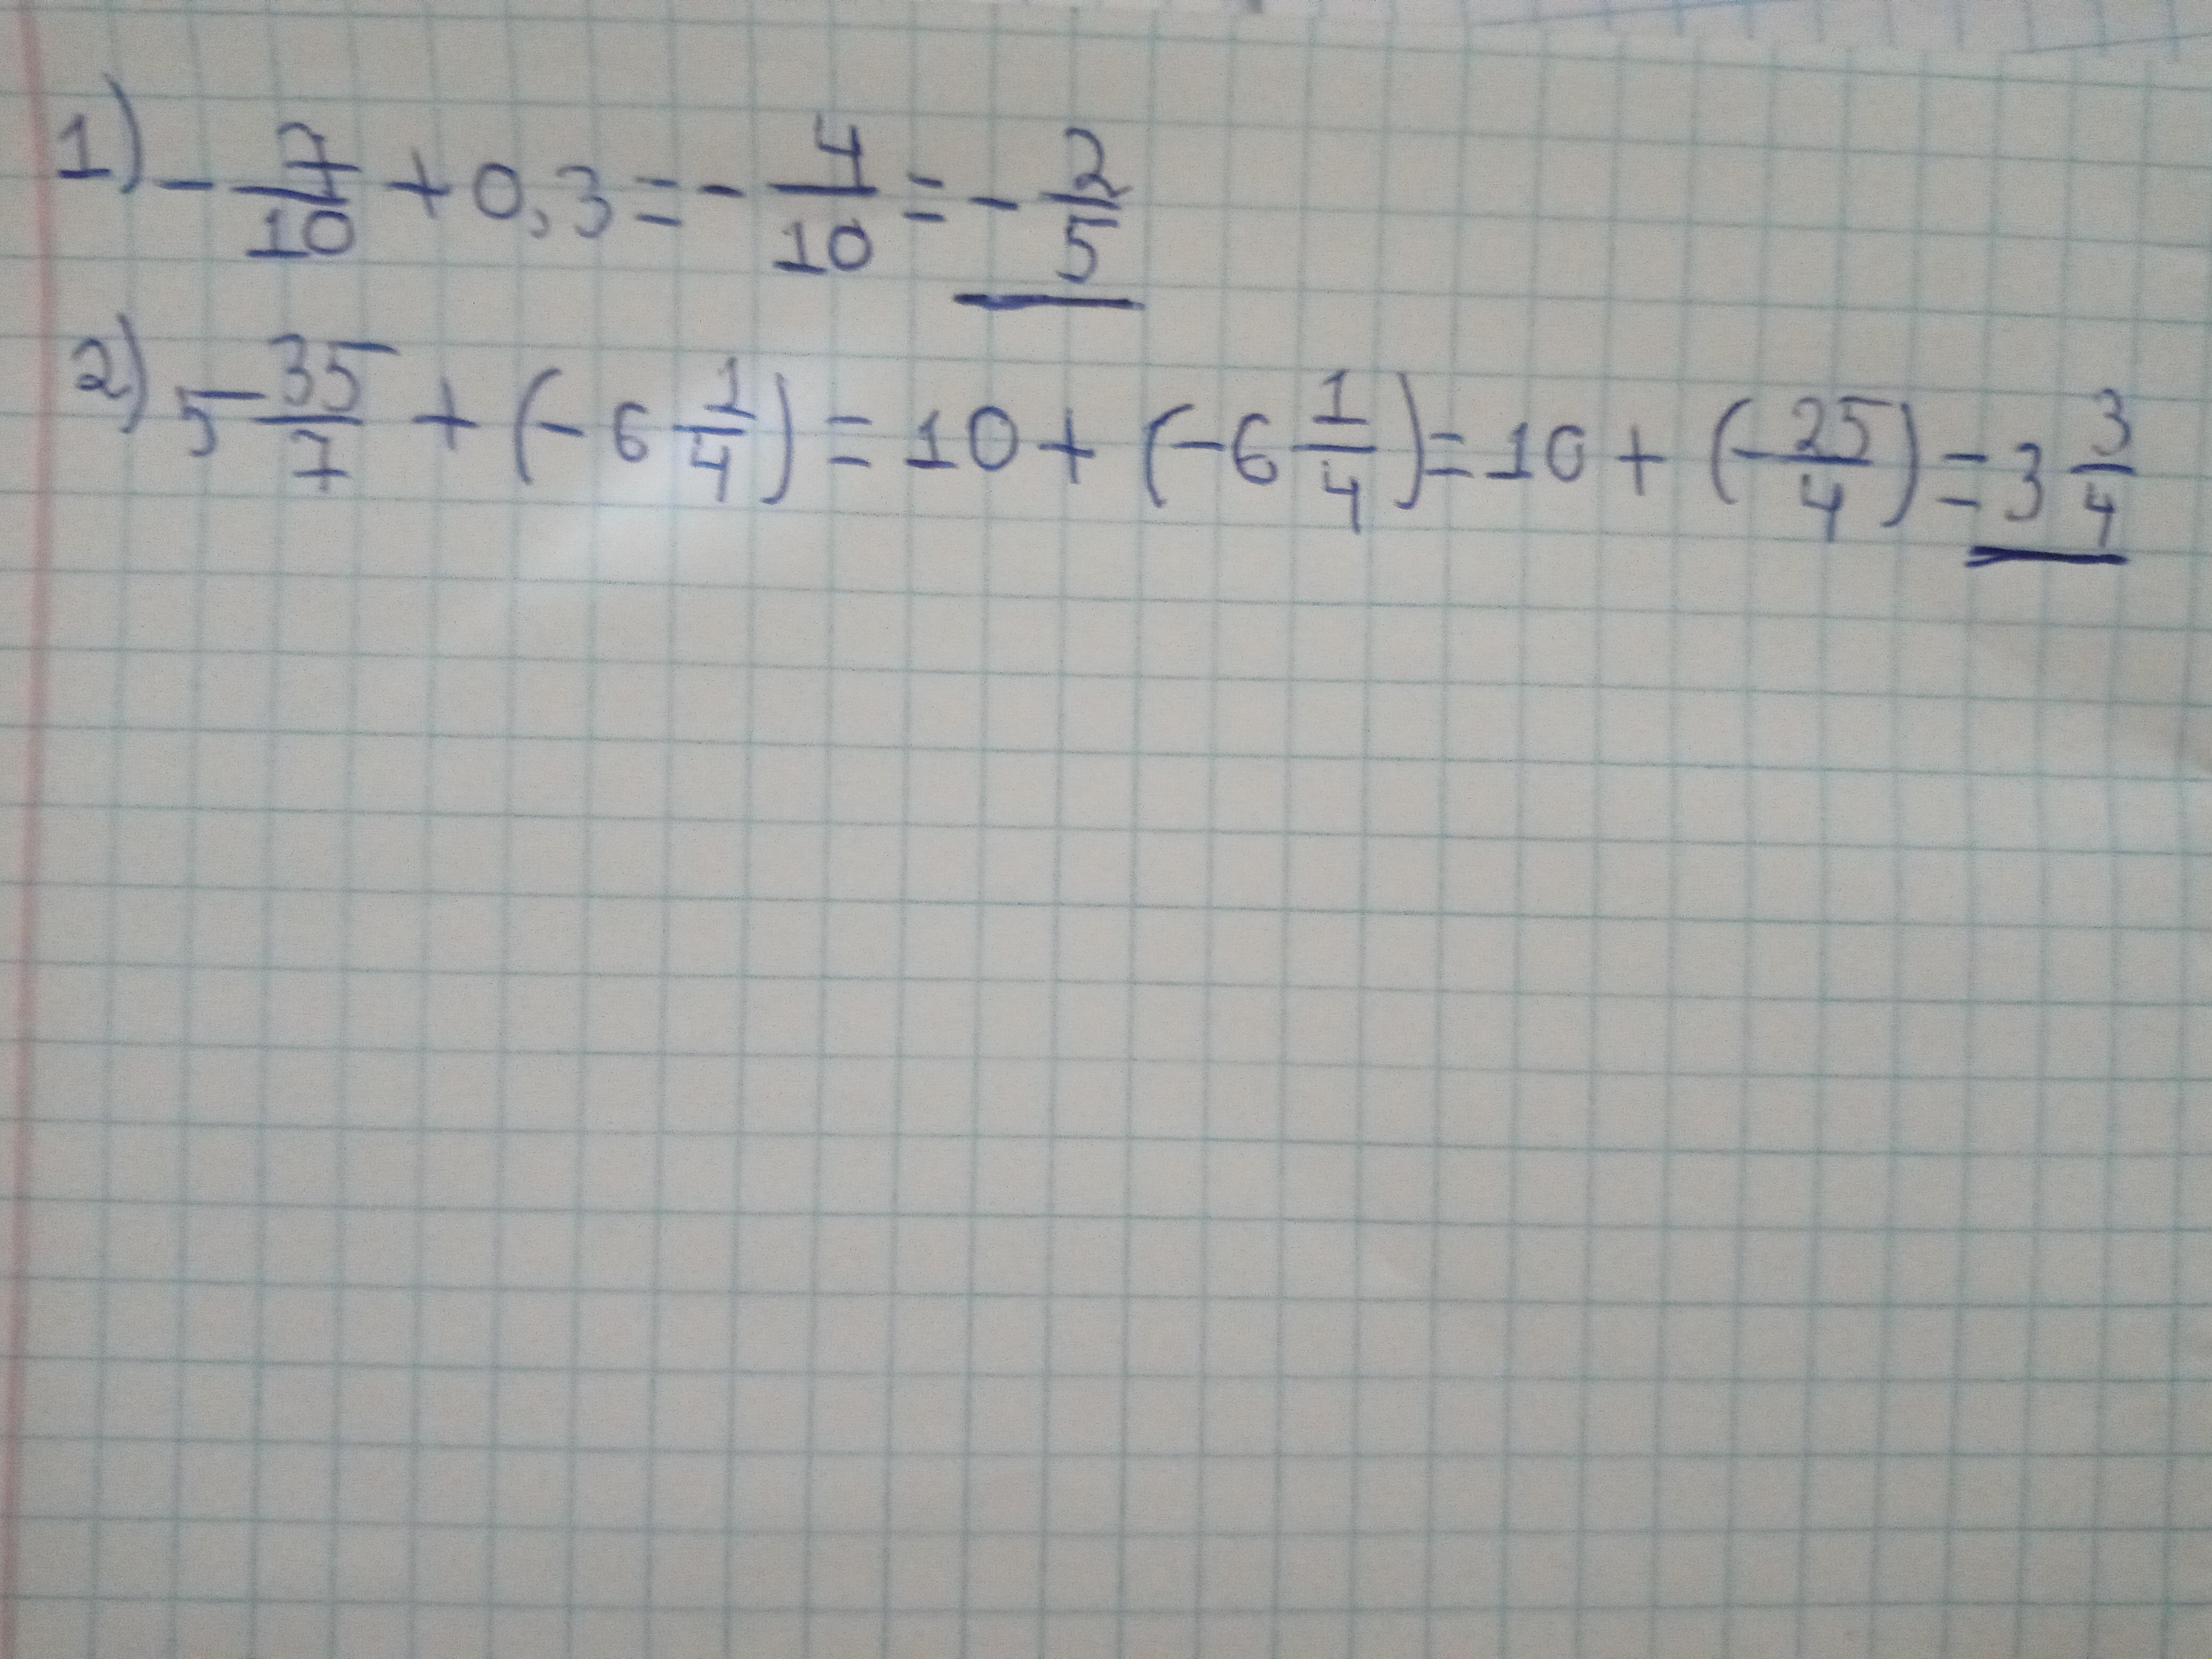 1) - 7/10 + 0,3 = - 4/10 = - 2/5
2) 5 35/7 + (- 6 1/4) = 10 + (- 6 1/4) = 10 + (- 25/4) = 3 3/4